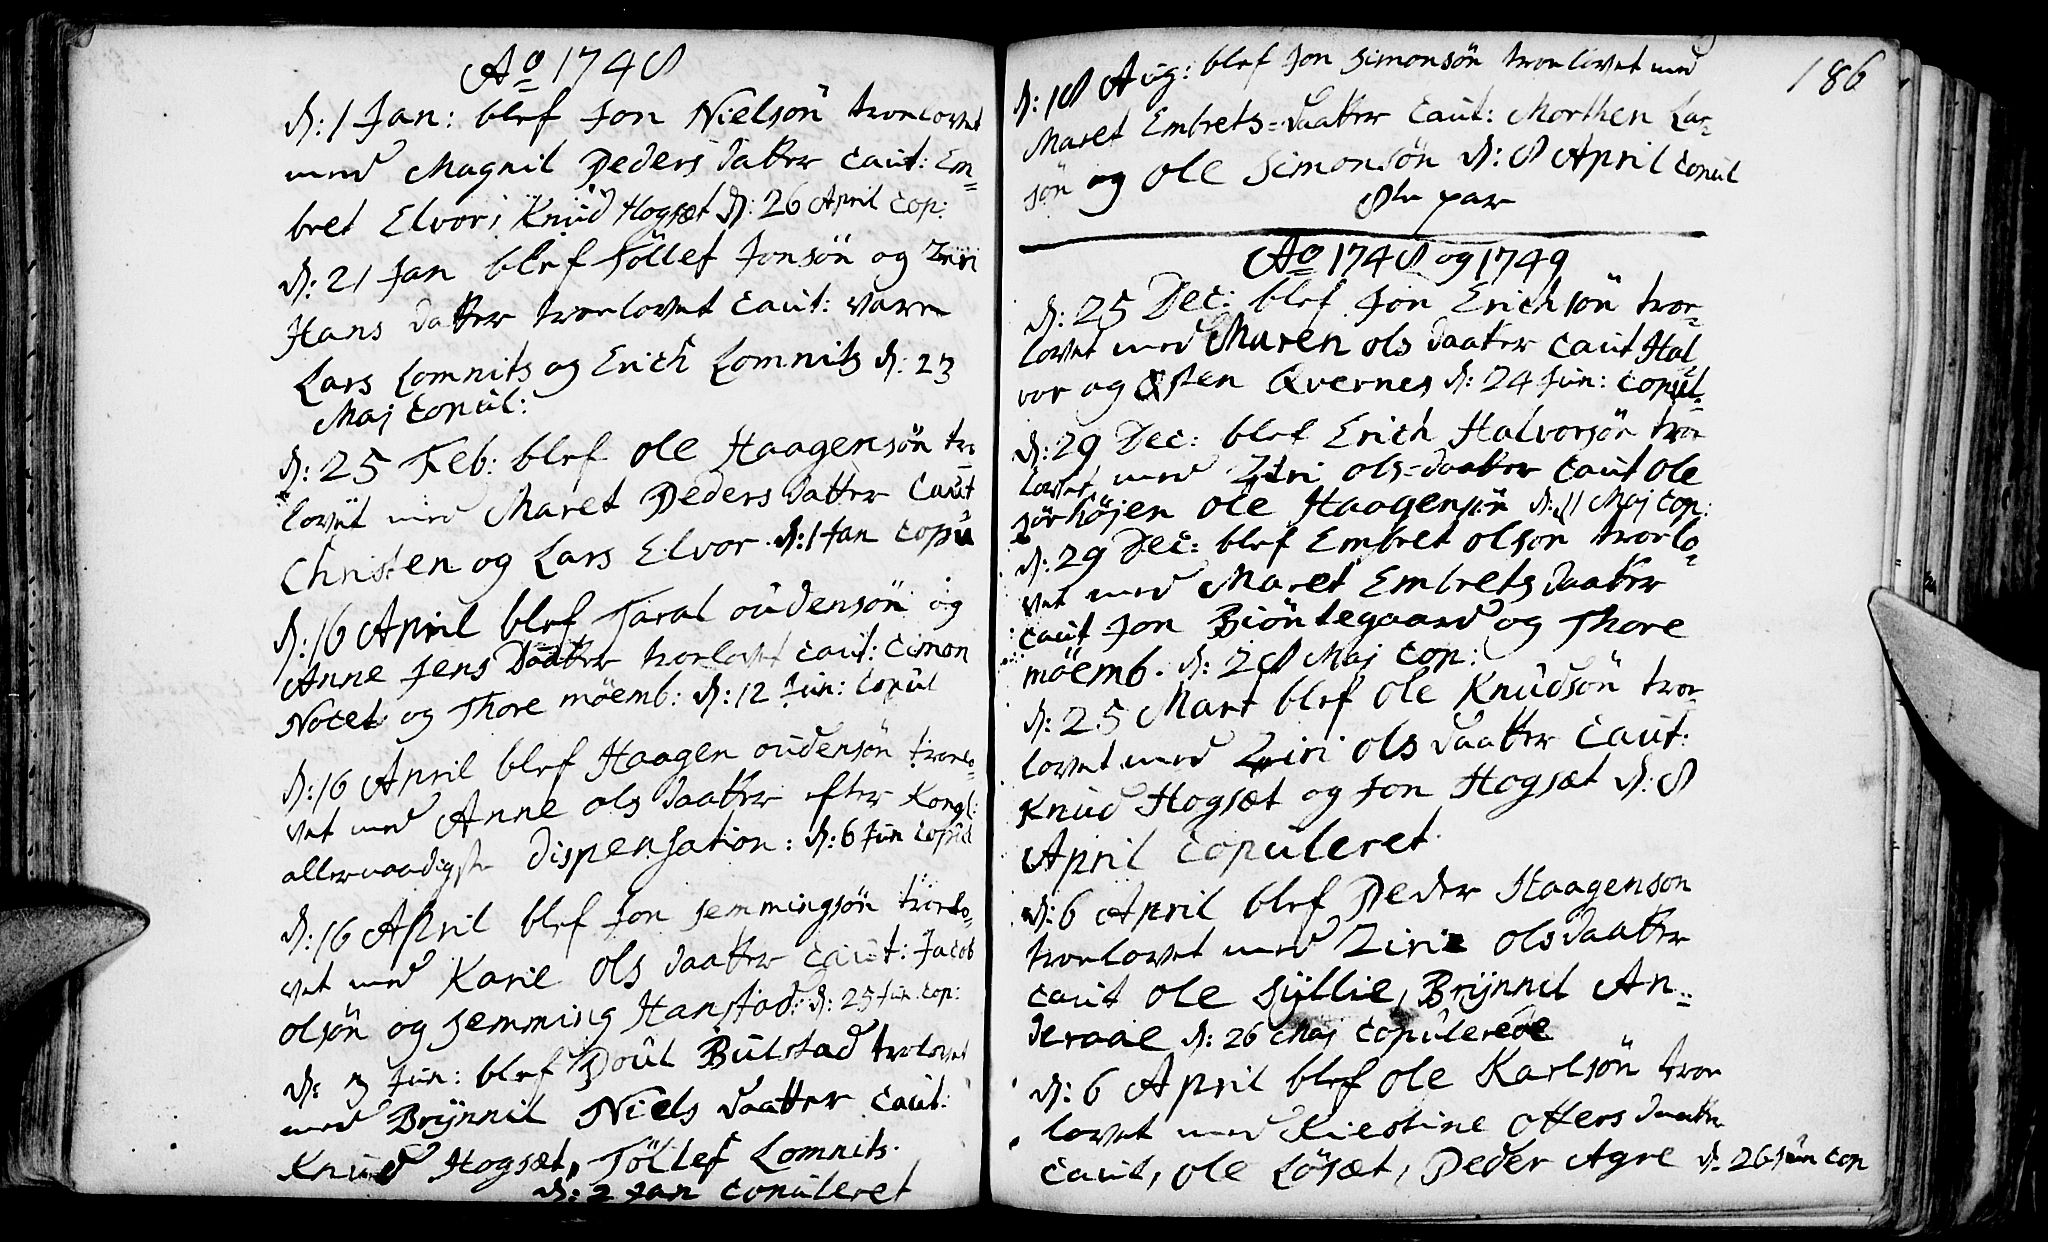 Ao 1748
d: 1 Jan: blef Jon Nielsön troelovet
med Magnil Peders datter Caut: Em-
bret Elvor, Knud Hogsæt d: 26 April Cop:
d: 21 Jan blef Töllef Jonsön og Ziri
Hans datter troelovet Caut: vare
Lars Lomnits og Erich Lomnits d: 23
Maj Copul:
d: 25 Feb: blef ole Haagensön tro
lovet med Maret Peders datter Caut
Christen og Lars Elvor d: 1 Jan Copu
d: 16 April blef Taral oudensön og
Anne Jens Daatter troelovet Caut: Cimon
Nocet og Thore möemb: d: 12 Jun: Copul
d: 16 April blef Haagen oudensön troelo-
vet med Anne ols daatter efter Kongl:
allernaadigste dispensation: d: 6 Jun Copul
d: 16 April blef Jon Jemmingsön troelo-
vet med Karie ols daatter Caut: Jacob
olsön og Jemming Hanstad: d: 25 Jun Cop:
d: 3 Jun: blef Poul Bulstad trolovet
med Brÿnnil Niels daatter Caut:
Knud Hogsæt, Töllef Lomnits.
d: 2 Jan Copuleret
186
d: 18 Aug: blef Jon Simonsön troelovet med
Maret Embrets-daatter Caut: Morthen Lar-
sön og Ole Simonsön d: 8 April Copul
8te par
Ao 1748 og 1749
d: 25 Dec: blef Jon Erichsön troe-
lovet med Maren ols daatter Caut Hal
vor og Østen Qvernes d: 24 Jun: Copul-
d: 29 Dec: blef Erich Halvorsön troe
lovet med Ziri ols-daatter Caut Ole
Sörhöjen Ole Haagensön d: 11 Maj Cop:
d: 29 Dec: blef Embret olson troelo-
vet med Maret Embrets daatter
Caut Jon Biöntegaard og Thore
möemb. d: 28 Maj Cop:
d: 25 Mart blef Ole Knudsön troe-
lovet med Ziri ols daatter Caut:
Knud Hogsæt og Jon Hogsæt d: 8
April Copuleret
d: 6 April blef Peder Haagenson
troelovet med Ziri olsdaatter
Caut Ole Syllie, Brÿnnil An-
deraae d: 26 Maj Copulerede
d: 6 April blef Ole Karlsön troe
lovet med Kiestine Ottersdaatter
Caut, Ole Lösæt, Peder Agre d: 26 Jun Cop